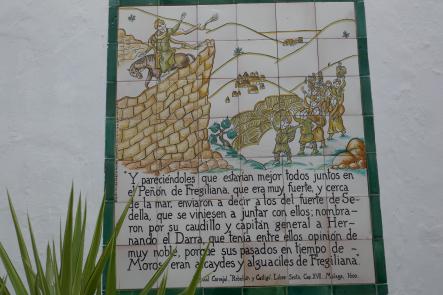 Y pareciéndoles que estarian mejor todos juntos en
el Peñón de Fregiliana, que era muy fuerte, y cerca
de la mar, enviaron a decir a los del fuerte de Se-
della, que se viniesen a juntar con ellos; nombra-
ron por su caudillo y capitán general a Her-
nando el Darra, que tenia entre ellos opinión de
muy noble, porque sus pasados en tiempo de
Moros, eran alcaydes y alguaciles de Fregiliana".
Carvajal, "Rebelión y Castigo" Libro Sexto, Cap. XVII. Málaga, 1600.